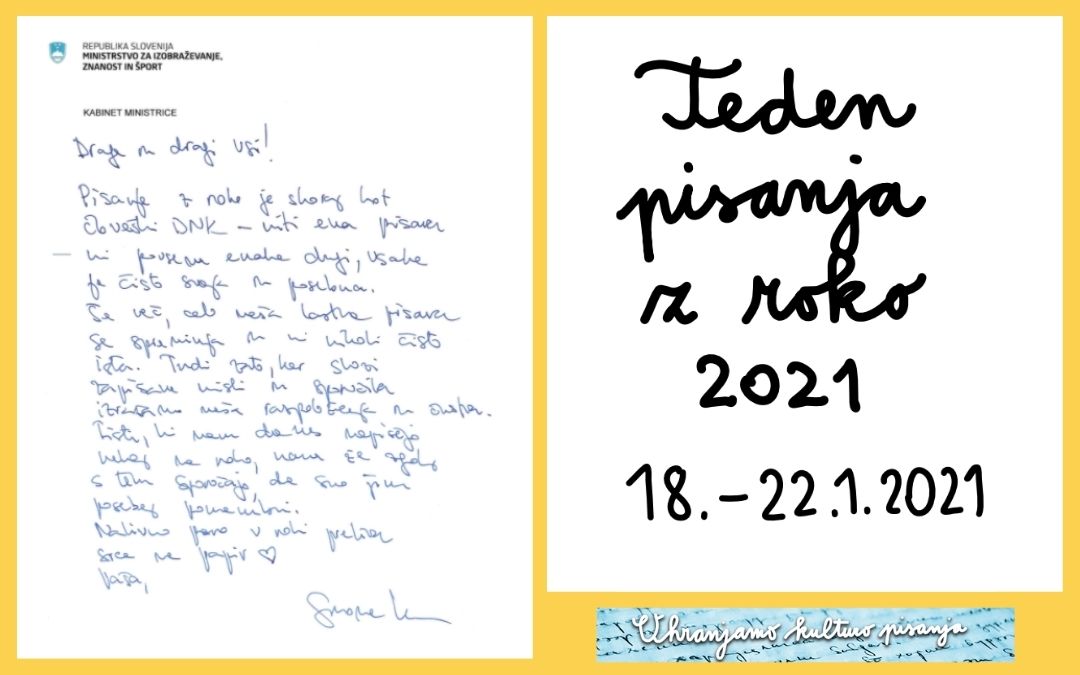 REPUBLIKA SLOVENIJA
MINISTRSTVO ZA IZOBRAŽEVANJE,
ZNANOST IN ŠPORT
KABINET MINISTRICE
Drage in dragi vsi!
Pisanje z roko je skoraj kot
človeški DNK – niti ena pisava
ni povsem enaka drugi, vsaka
je čisto svoja in posebna.
Še več, celo naša lastna pisava
se spreminja in ni nikoli čisto
ista. Tudi zato, ker skozi
zapisane misli in sporočila
izražamo naša razpoloženja in
Tisti, ki nam danes napišejo
nekaj na roko, nam že
s tem sporočajo, da smo jim
posebej pomembni.
Nalivno pero v roki preliva
srce na papir ♡
Vaša,
Teden
pisanja
z roko
2021
18.–22.1.2021
Uhranjamo kulturo pisanja